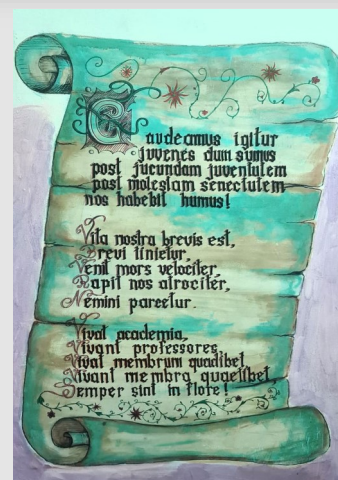 Gaudeamus igitur
juvenes dum sumus
post jucundam juventutem
post molestam senectutem
nos habebit humus!
Vita nostra brevis est,
Brevi finietur,
Venit mors velociter,
Rapit nos atrociter,
Nemini parcetur.
Vivat academia,
Vivant professores
Vivat membrum quodlibet,
Vivant membra quaelibet,
Semper sint in flore!